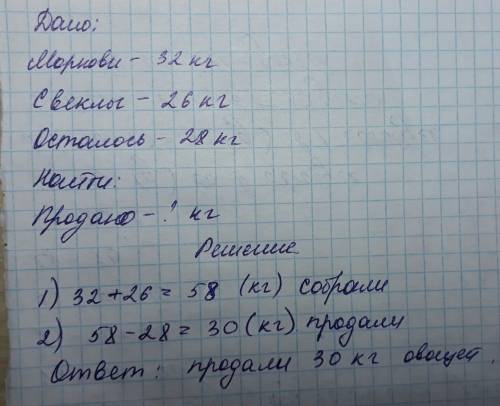 Дано:
Моркови - 32 кг
Свеклы - 26 кг
Осталось - 28 кг
Найти:
Продано - ? кг
Решение
1) 32+26 = 58 (кг) собрали
2) 58-28 = 30 (кг) продали
Ответ: продали 30 кг овощей.